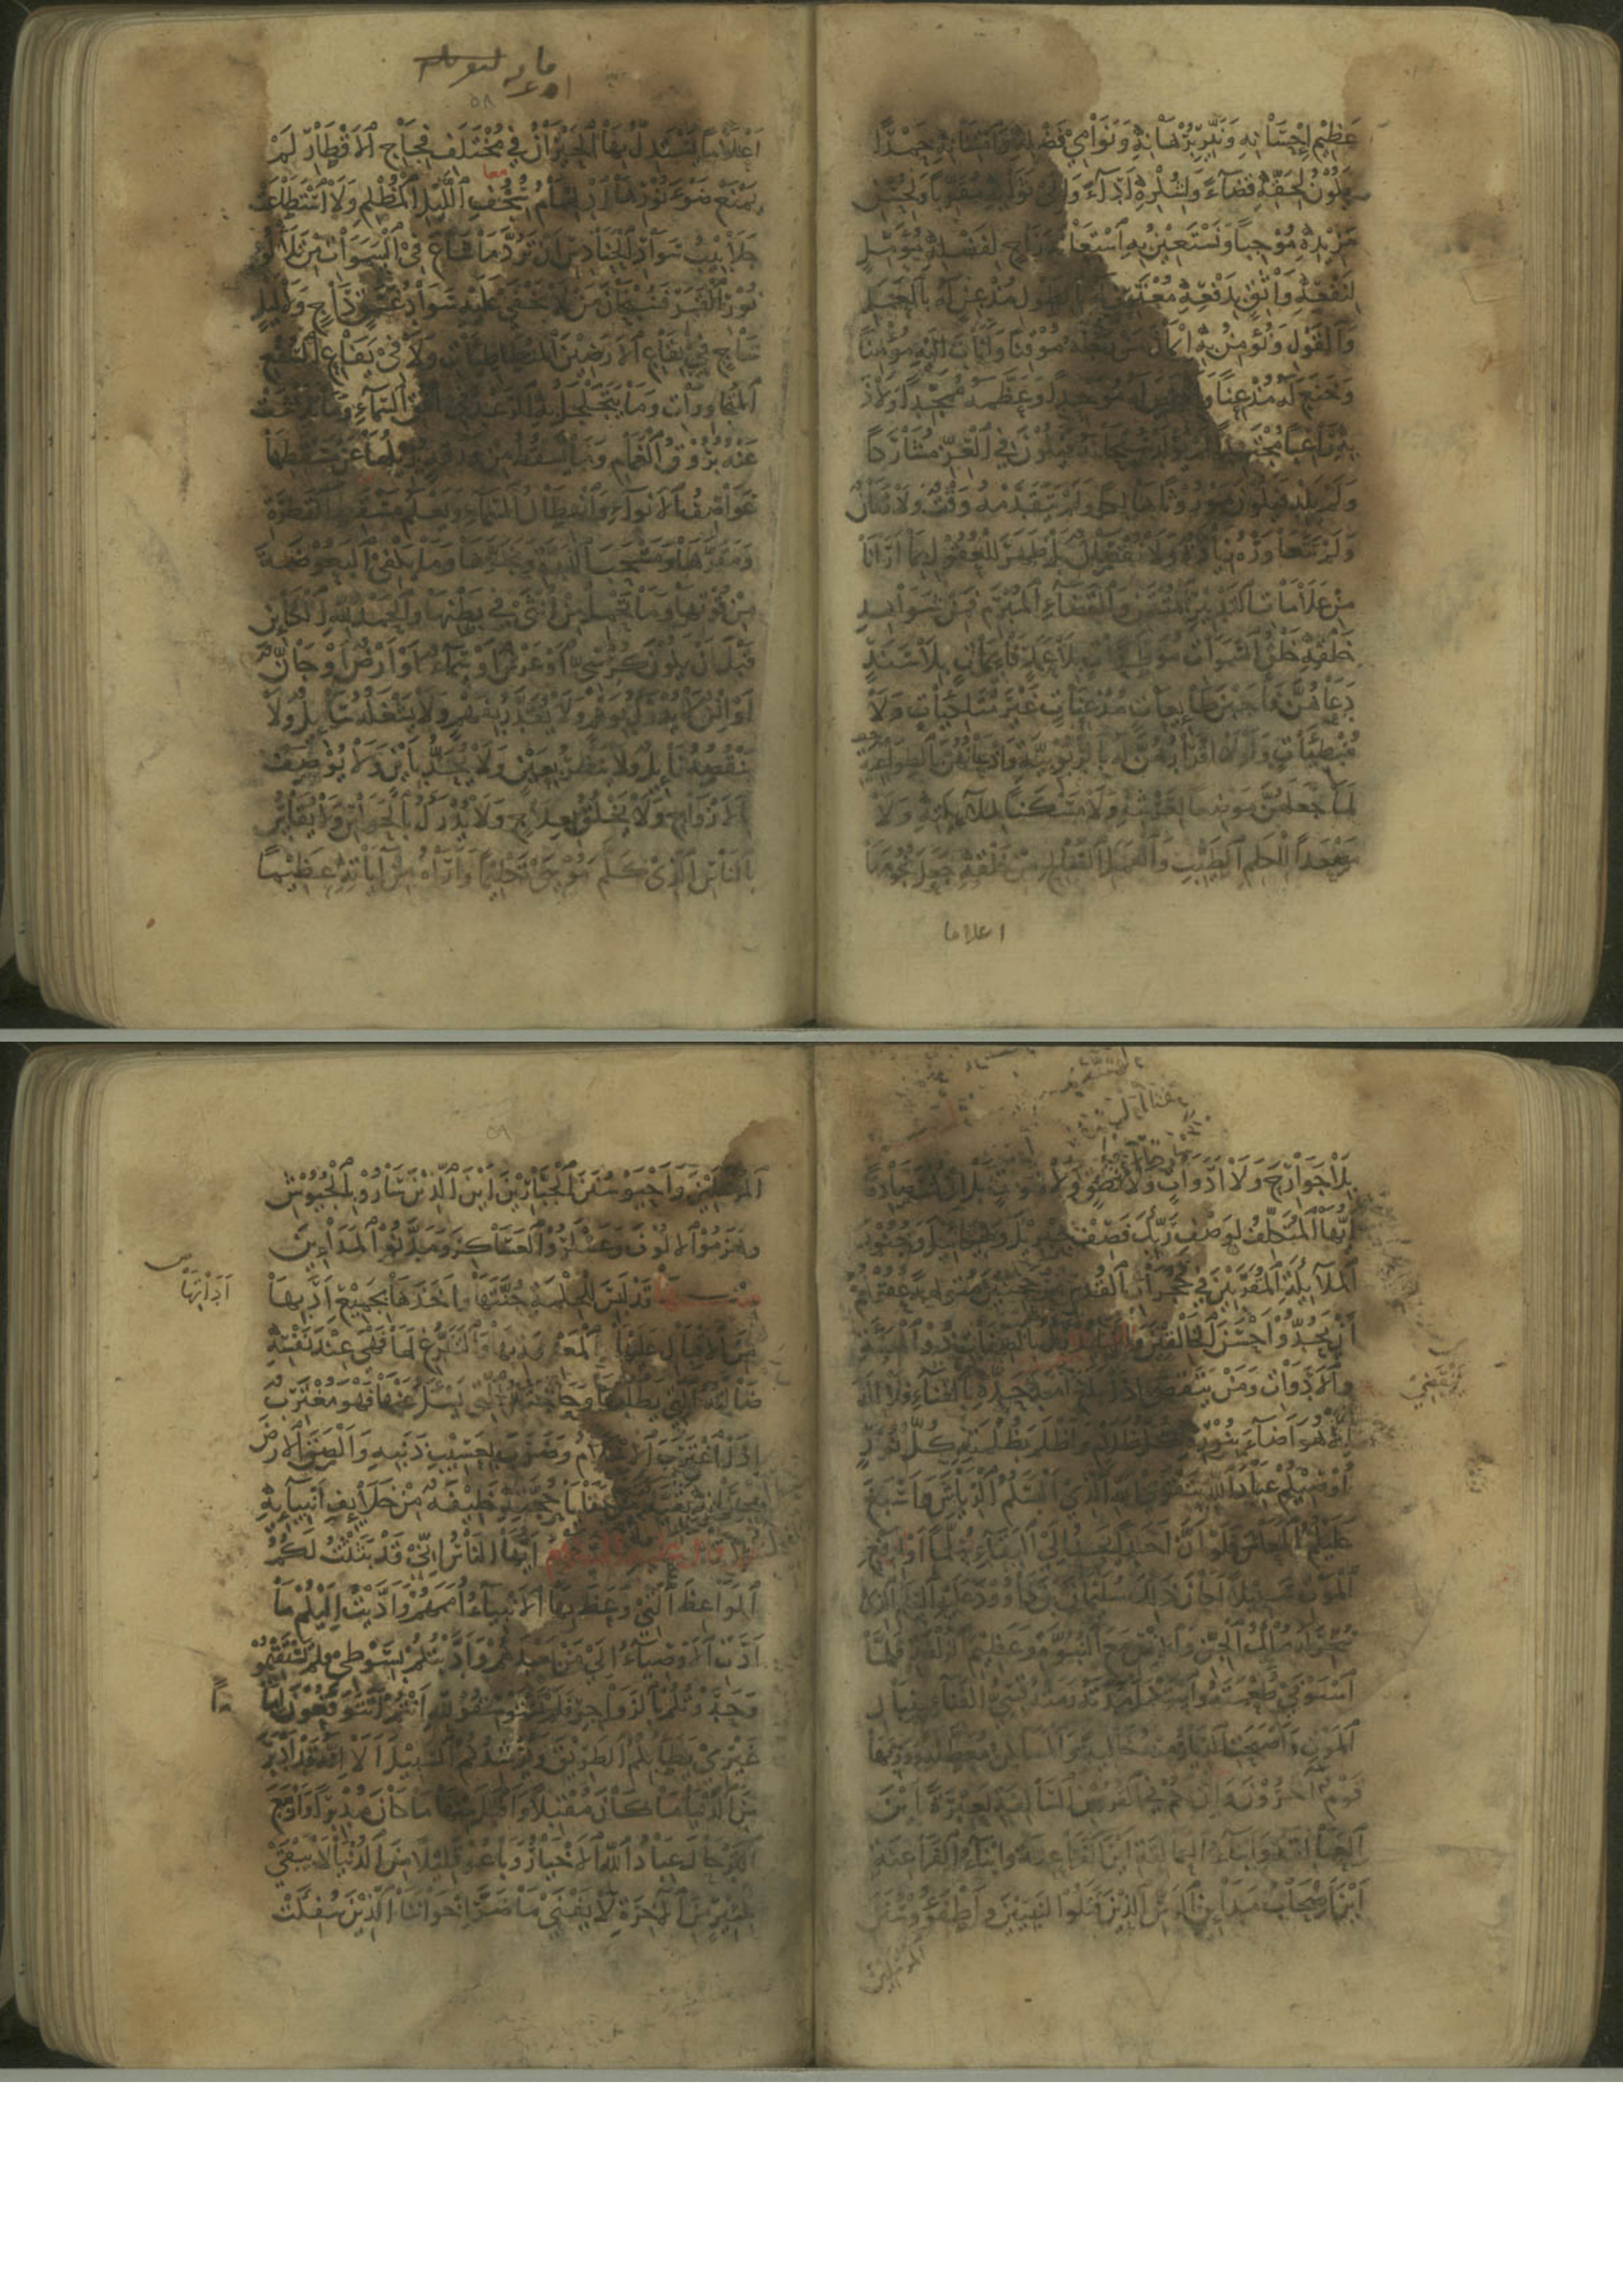 عظيم إحسانه ونير برهانه ونوامي فضله وامتنانه حمدا
يكون لحقه قضاء ولشكره أداء وإلى ثوابه مقربا ولحسن
مزيده موجبا ونستعين به استعانة راج لفضله مؤمل
لنفعه واثق بدفعه معترف له بالطول مذعن له بالعمل
والقول ونؤمن به إيمان من رجاه موقنا وأناب إليه مؤمنا
وخنع له مذعنا وأخلص له موحدا وعظمه ممجدا ولاذ
به راغبا مجتهدا لم يولد سبحانه فيكون في العز مشاركا
ولم يلد فيكون موروثا هالكا ولم يتقدمه وقت ولا زمان
ولم يتعاوره زيادة ولا نقصان بل ظهر للعقول بما أرانا
من علامات التدبير المتقن والقضاء المبرم فمن شواهد
خلقه خلق السموات موطدات بلا عمد قائمات بلا سند
دعاهن فأجبن طائعات مذعنات غير متلكئات ولا
مبطئات ولولا إقرارهن له بالربوبية وإذعانهن بالطواعية
لما جعلهن موضعا لعرشه ولا مسكنا لملائكته ولا
مصعدا للكلم الطيب والعمل الصالح من خلقه جعل نجومها
اعلاما
٥٨
أعلاما يستدل بها الحيران في مختلف فجاج الأقطار لم
يمنع ضوء نورها ادلهمام سجف الليل المظلم ولا استطاعت
معا
جلابيب سواد الحنادس أن ترد ما شاع في السموات من تلألؤ
نور القمر فسبحان من لا يخفى عليه سواد غسق داج ولا ليل
ساج في بقاع الأرضين المتطأطئات ولا في يفاع السفع
المتجاورات وما يتجلجل به الرعد في أفق السماء وما تلاشت
عنه بروق الغمام وما تسقط من ورقة تزيلها عن مسقطها
عواصف الأنواء وانهطال السماء ويعلم مسقط القطرة
ومقرها ومسحب الذرة ومجرها وما يكفي البعوضة
من قوتها وما تحمل من أنثى في بطنها والحمد لله الكائن
قبل أن يكون كرسي أو عرش أو سماء أو أرض أو جان
أو إنس لا يدرك بوهم ولا يقدر بفهم ولا يشغله سائل ولا
ينقصه نائل ولا ينظر بعين ولا يحد بأين ولا يوصف
بالأزواج ولا يخلق بعلاج ولا يدرك بالحواس ولا يقاس
بالناس الذي كلم موسى تكليما وأراه من آياته عظيما
بلا جوارح ولا أدوات ولا نطق ولا لهوات بل إن كنت صادقا
أيها المتكلف لوصف ربك فصف جبريل وميكائيل وجنود
الملائكة المقربين في حجرات القدس مرجحنين متولهة عقولهم
أن يحدوا أحسن الخالقين وإنما يدرك بالصفات ذوو الهيئة
والأدوات ومن ينقضي إذا بلغ أمد حده بالفناء فلا إله
إلا هو أضاء بنوره كل ظلام وأظلم بظلمته كل نور
أوصيكم عباد الله بتقوى الله الذي ألبسكم الرياش وأسبغ
عليكم المعاش فلو أن أحدا يجد إلى البقاء سلما أو لدفع
الموت سبيلا لكان ذلك سليمان بن داوود عليه السلام الذي
سخر له ملك الجن والإنس مع النبوة وعظيم الزلفة فلما
استوفى طعمته واستكمل مدته رمته قسي الفناء بنبال
الموت وأصبحت الديار منه خالية والمساكن معطلة وورثها
قوم آخرون وإن لكم في القرون السالفة لعبرة أين
العمالقة وأبناء العمالقة أين الفراعنة وأبناء الفراعنة
أين أصحاب مدائن الرس الذين قتلوا النبيين وأطفؤوا سنن
المرسلين
٥٩
المرسلين وأحيوا سنن الجبارين أين الذين ساروا بالجيوش
وهزموا الألوف وعسكروا العساكر ومدنوا المدائن
منها قد لبس للحكمة جنتها وأخذها بجميع أدبها
آدابها
من الإقبال عليها والمعرفة بها والتفرغ لها فهي عند نفسه
ضالته التي يطلبها وحاجته التي يسأل عنها فهو مغترب
إذا اغترب الإسلام وضرب بعسيب ذنبه وألصق الأرض
بجرانه بقية من بقايا حجته خليفة من خلائف أنبيائه
ثم قال عليه السلام أيها الناس إني قد بثثت لكم
المواعظ التي وعظ بها الأنبياء أممهم وأديت إليكم ما
أدت الأوصياء إلى من بعدهم وأدبتكم بسوطي فلم تستقيموا
وحدوتكم بالزواجر فلم تستوسقوا لله أنتم أتتوقعون إماما
غيري يطأ بكم الطريق ويرشدكم السبيل ألا إنه قد أدبر
من الدنيا ما كان مقبلا وأقبل منها ما كان مدبرا وأزمع
الترحال عباد الله الأخيار وباعوا قليلا من الدنيا لا يبقى
بكثير من الآخرة لا يفنى ما ضر إخواننا الذين سفكت